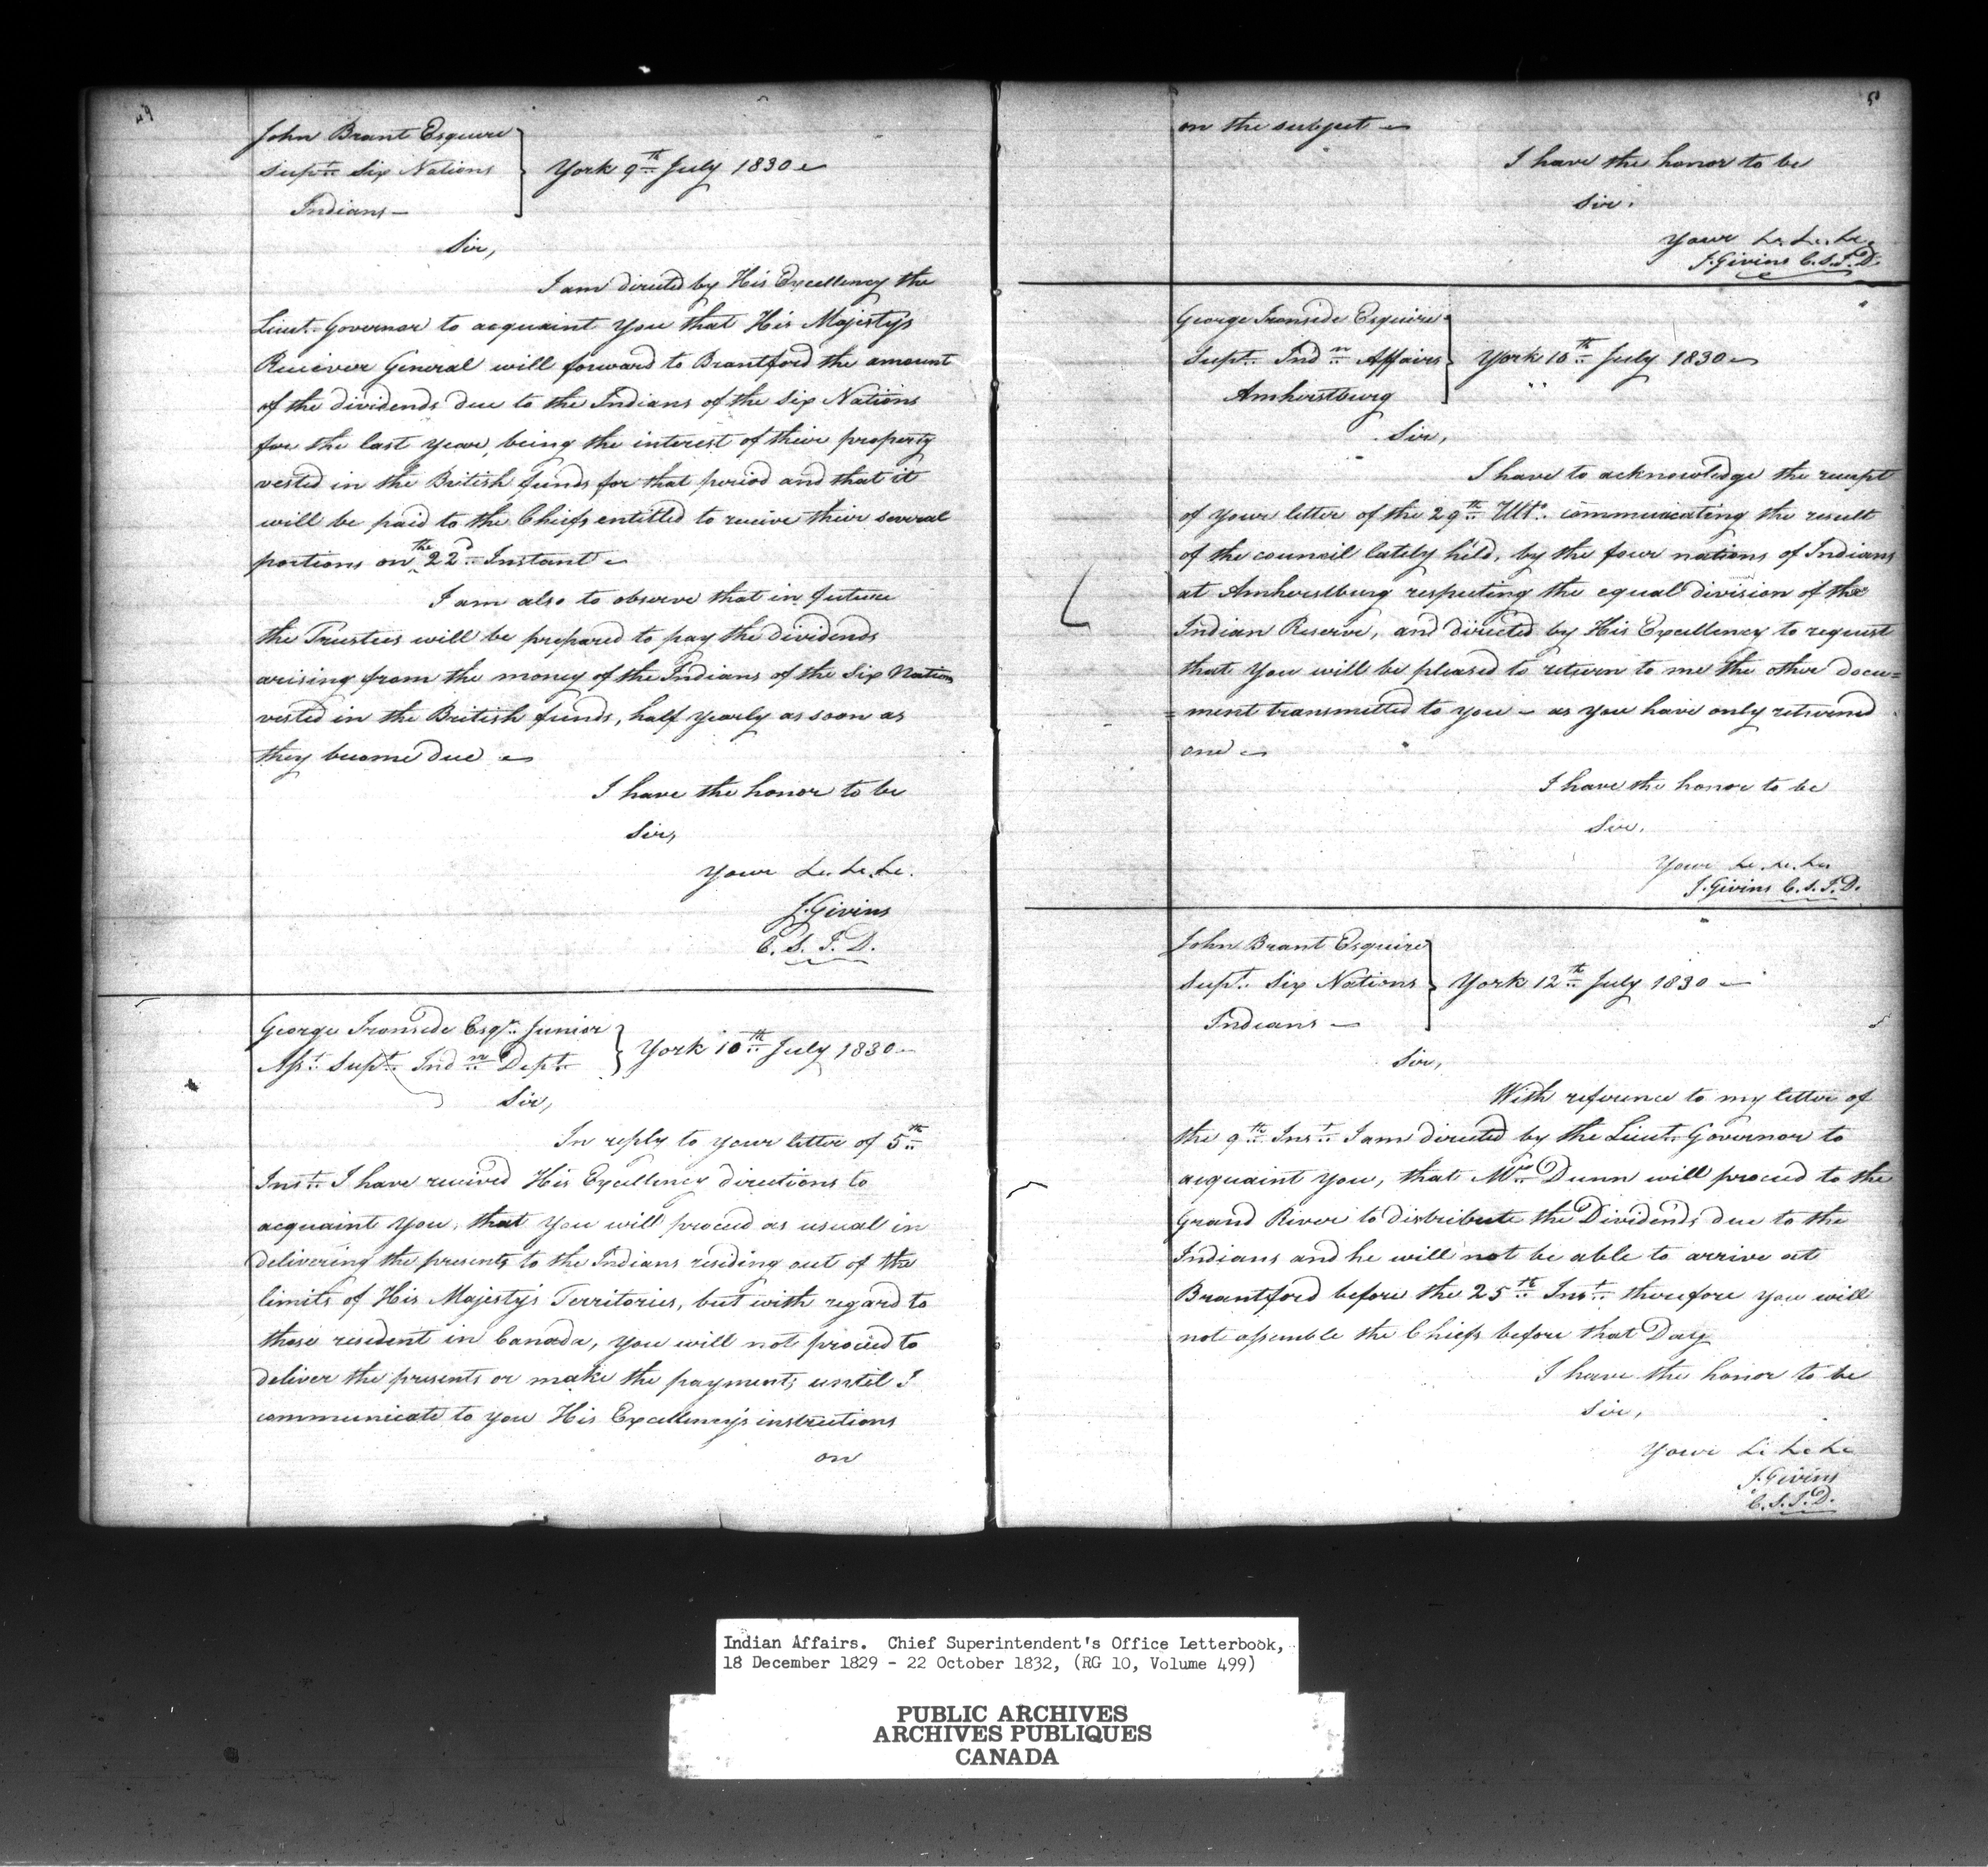 49
John Brant Esquire
Supt. Six Nations
Indians —
York 9th July 1830 —
Sir,
I am directed by His Excellency the
Lieut. Governor to acquaint you that His Majesty's
Reciever General will forward to Brantford the amount
of the dividends due to the Indians of the Six Nations
for the last year, being the interest of their property
vested in the British funds for that period and that it
will be paid to the Chiefs entitled to receive their several
portions on the 22d Instant —
I am also to observe that in future
the Trustees will be prepared to pay the dividends
arising from the money of the Indians of the Six Nations
vested in the British funds, half yearly as soon as
they become due —
I have the honor to be
Sir,
Your &c. &c. &c.
J. Givins
C. S. I. D.
George Ironside Esqr. Junior
Asst. Supt. Indn Dept.
York 10th July 1830 —
Sir,
In reply to your letter of 5th
Inst. I have received His Excellency directions to
acquaint you, that you will proceed as usual in
delivering the presents to the Indians residing out of the
limits of His Majesty's Territories, but with regard to
those resident in Canada, you will not proceed to
deliver the presents or make the payments until I
communicate to you His Excellency's instructions
on
on the subject —
I have the honor to be
Sir.
Your &c. &c. &c.
J. Givins C. S. I. D.
George Ironside Esquire
Supt. Indn Affairs
Amherstburg
York 10th July 1830 —
Sir,
I have to acknowledge the receipt
of your letter of the 29th Ulto. communicating the result
of the council lately held, by the four nations of Indians
at Amherstburg respecting the equal division of the
Indian Reserve, and directed by His Excellency to request
that you will be pleased to return to me the other docu=
=ment transmitted to you — as you have only returned
one —
I have the honor to be
Sir.
Your &c. &c. &c.
J. Givins C. S. I. D.
John Brant Esquire
Supt. Six Nations
Indians —
York 12th July 1830 —
Sir,
With reference to my letter of
the 9th Inst. I am directed by the Lieut. Governor to
acquaint you, that Mr. Dunn will proceed to the
Grand River to distribute the Dividends due to the
Indians and he will not be able to arrive at
Brantford before the 25th Inst. therefore you will
not assemble the Chiefs before that Day
I have the honor to be
Sir,
Your &c &c &c
J. Givins
C. S. I. D.
Indian Affairs. Chief Superintendent's Office Letterbook,
18 December 1829 - 22 October 1832, (RG 10, Volume 499)
PUBLIC ARCHIVES
ARCHIVES PUBLIQUES
CANADA